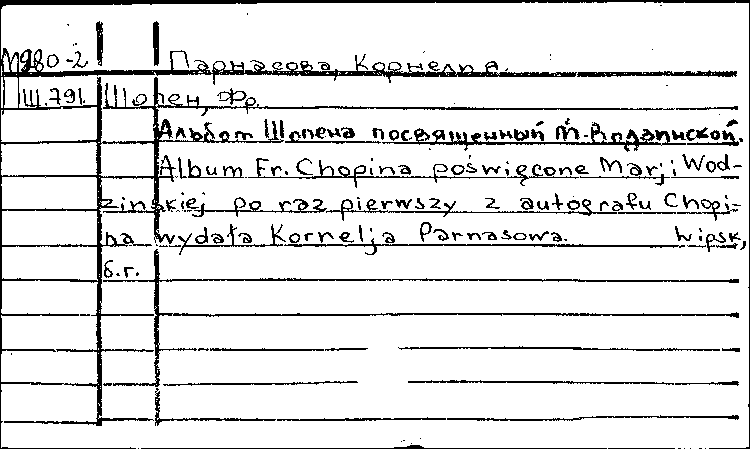 М980-2 Парнасова, Корнелия.
Ш.791 Шопен, Фр.
Альбом Шопена посвященный М. Водзинской.
Album Fr. Chopina poświęcone Marji Wod-
zińskiej po raz pierwszy z autografu Chopi-
na wydała Kornelja Parnasowa. Lipsk,
б.г.